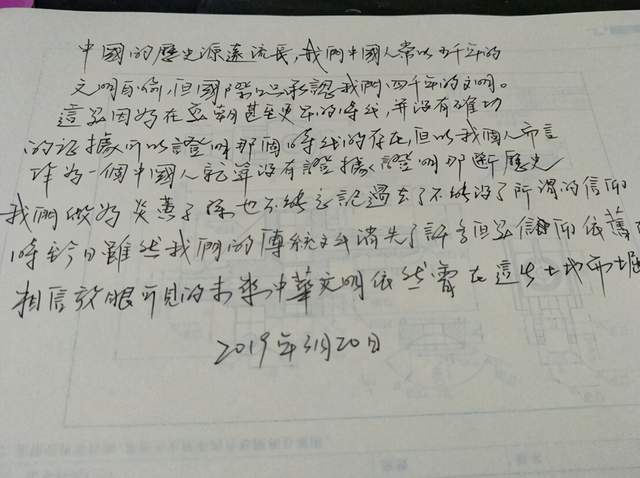 中國的歷史源遠流長,我們中國人常以五千年的
文明自倚,但國際只承認我們四千年的文明。
這是因為在夏朝甚至更早的時代,并沒有確切
的証據可以證明那個時代的存在,但以我個人而言
作為一個中國人就算沒有證據證明那斷歷史
我們做為炎黃子孫也不能忘記過去了不能沒了所謂的信仰
時至今日雖然我們的傳統文化消失了許多但是信仰依舊
相信放眼可見的未來中華文明依然會在這片土地而
2019年3月20日